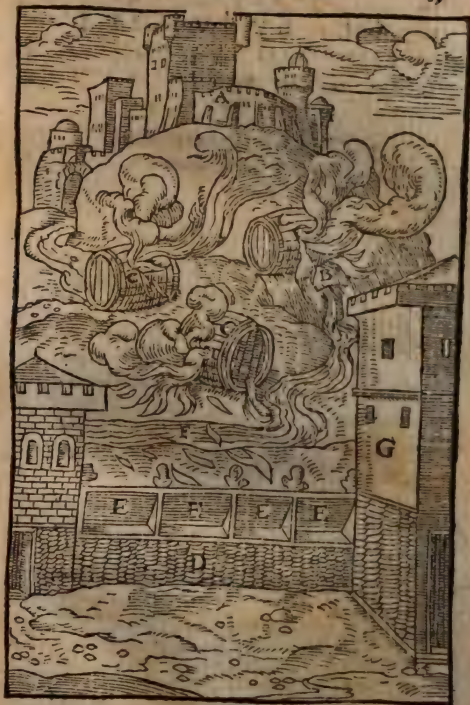 A
B
C
F
G
E E E E
D